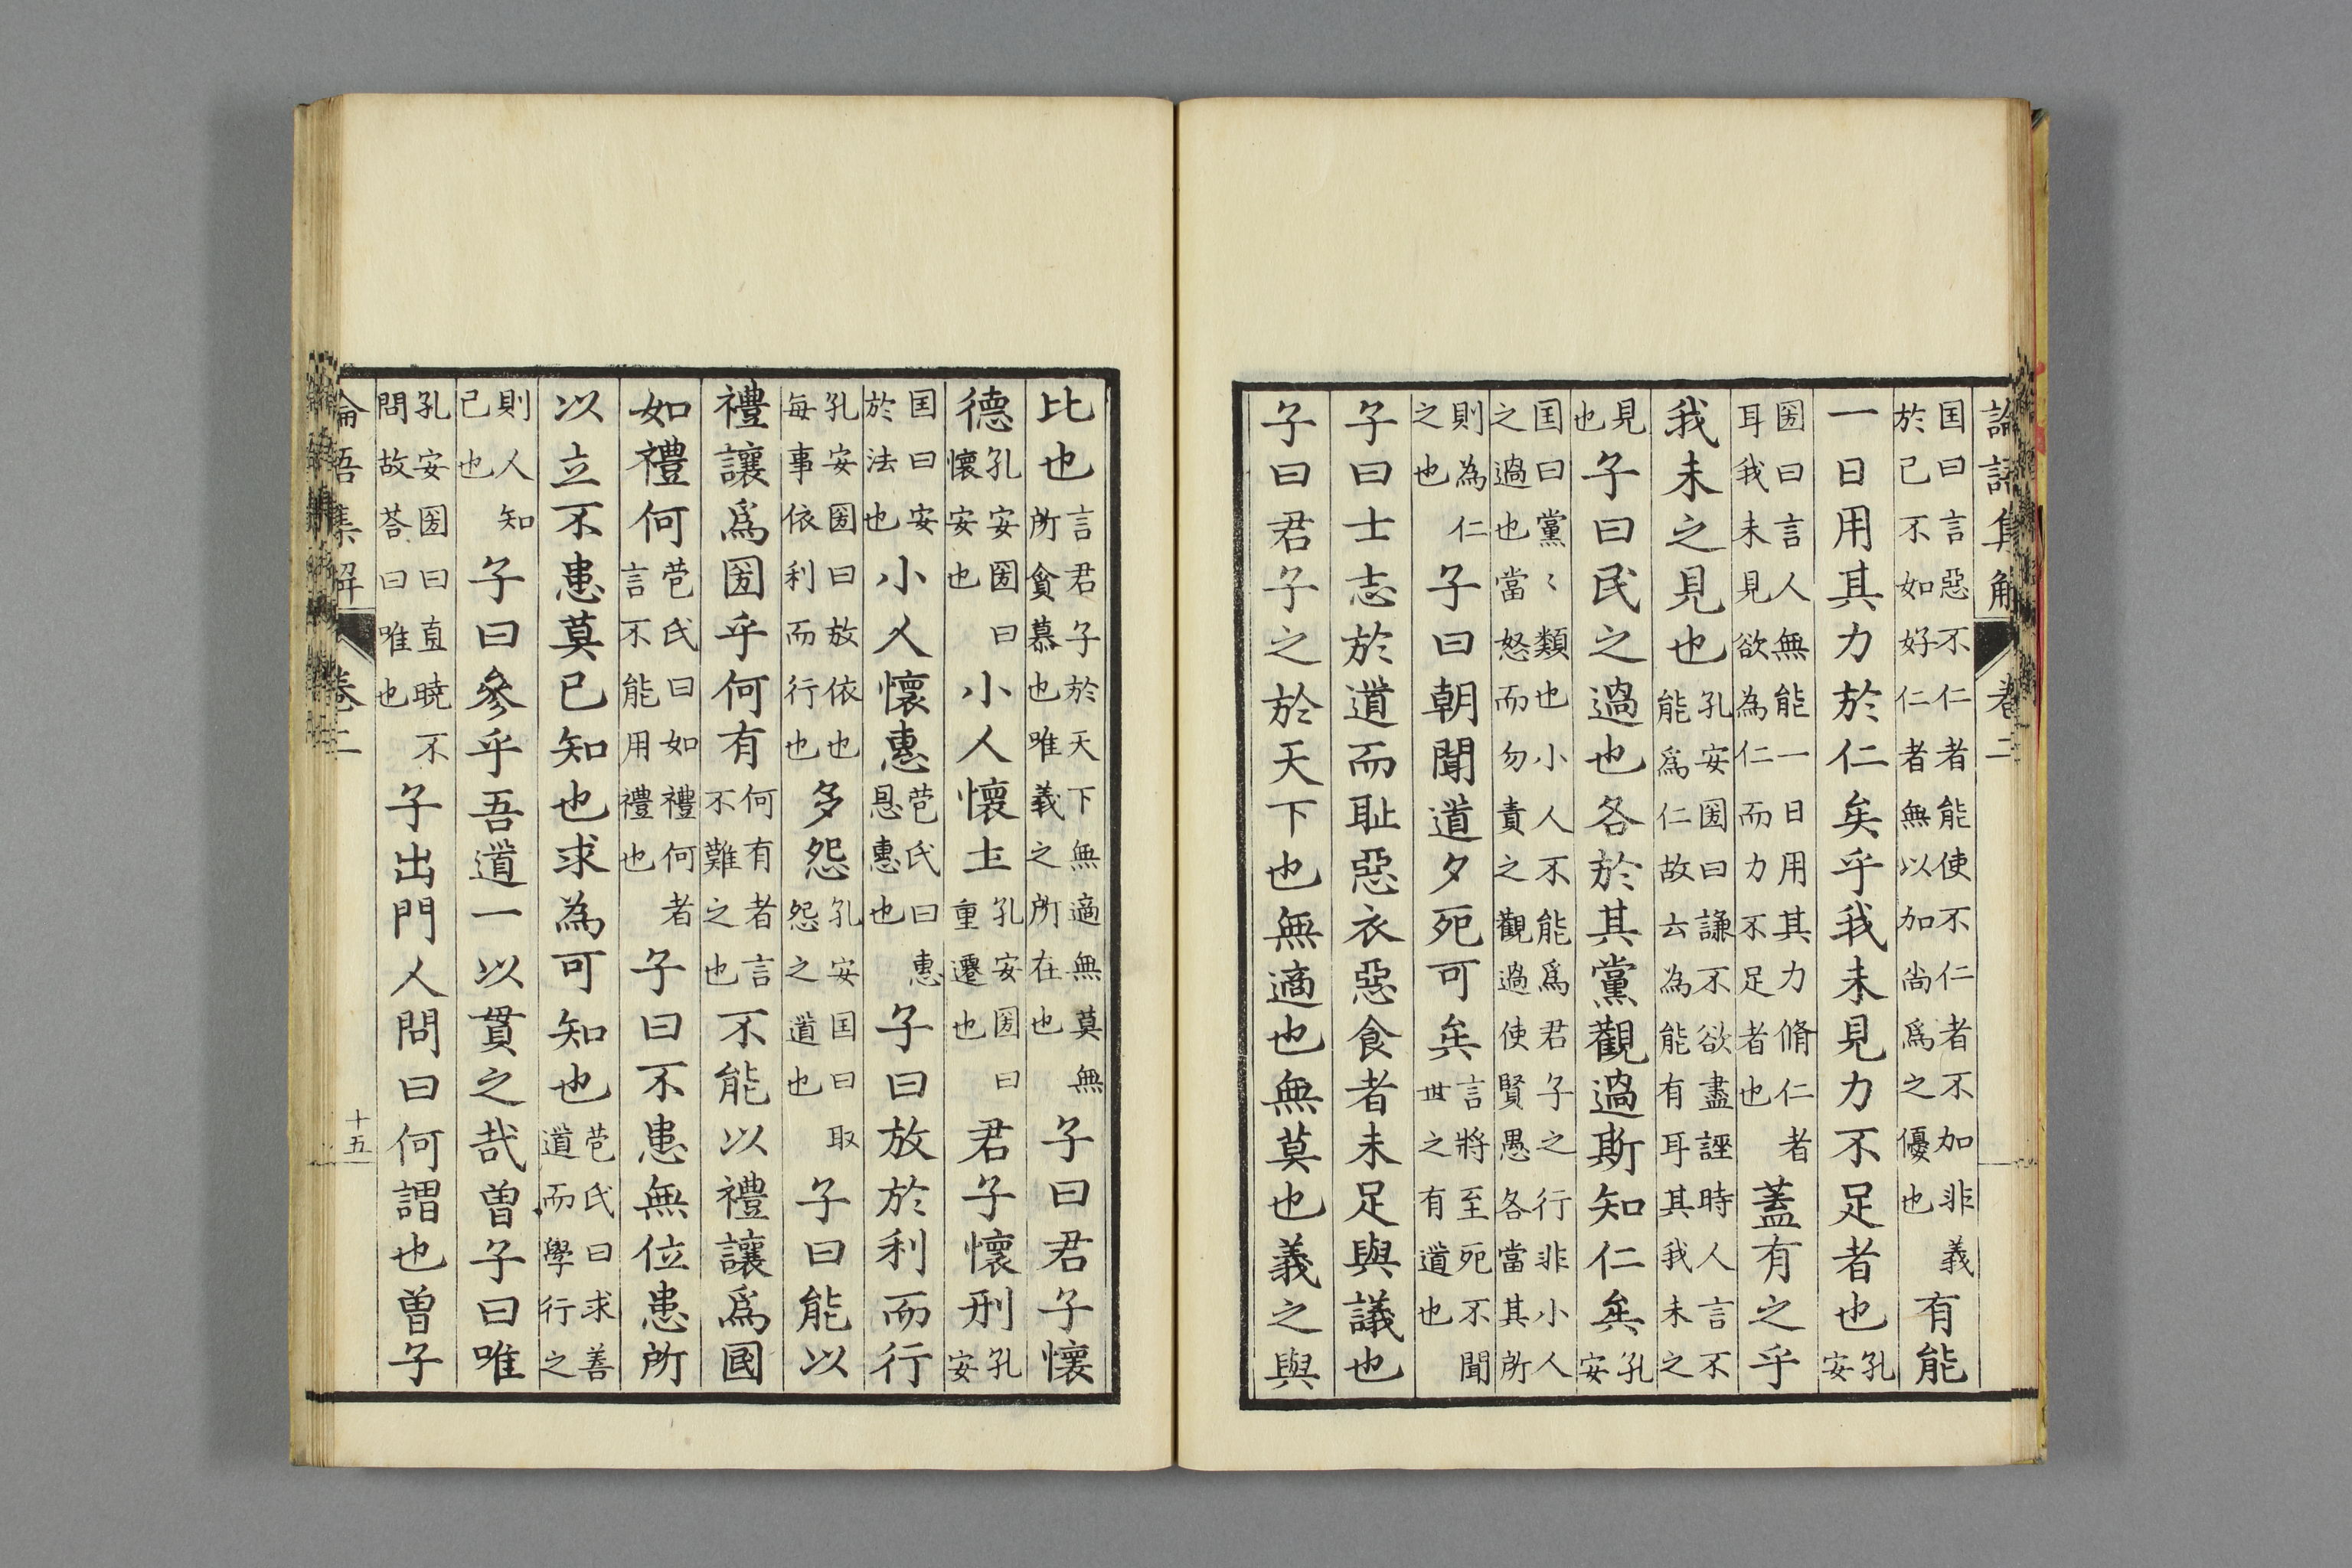 論語集解 卷二
囯曰言惡不仁者能使不仁者不加非義於己不如好仁者無以加尚爲之優也有能
一日用其力於仁矣乎我未見力不足者也孔安
圀曰言人無能一日用其力脩仁者耳我未見欲為仁而力不足者也蓋有之乎
我未之見也孔安圀曰謙不欲盡誣時人言不能爲仁故云為能有耳其我未之
見也子曰民之過也各於其黨觀過斯知仁矣孔安
囯曰黨〻類也小人不能爲君子之行非小人之過也當怒而勿責之觀過使賢愚各當其所
則為仁之也子曰朝聞道夕死可矣言將至死不聞世之有道也
子曰士志於道而耻惡衣惡食者未足與議也
子曰君子之於天下也無適也無莫也義之與
比也言君子於天下無適無莫無所貪慕也唯義之所在也子曰君子懷
德孔安圀曰懷安也小人懷土孔安圀曰重遷也君子懷刑孔安
囯曰安於法也小人懷惠苞氏曰惠恩惠也子曰放於利而行
孔安圀曰放依也每事依利而行也多怨孔安囯曰取怨之道也子曰能以
禮讓爲圀乎何有何有者言不難之也不能以禮讓爲國
如禮何苞氏曰如禮何者言不能用禮也子曰不患無位患所
以立不患莫己知也求為可知也苞氏曰求善道而學行之
則人知己也子曰參乎吾道一以貫之哉曾子曰唯
孔安圀曰直曉不問故荅曰唯也子出門人問曰何謂也曾子
論語集解 卷二 十五